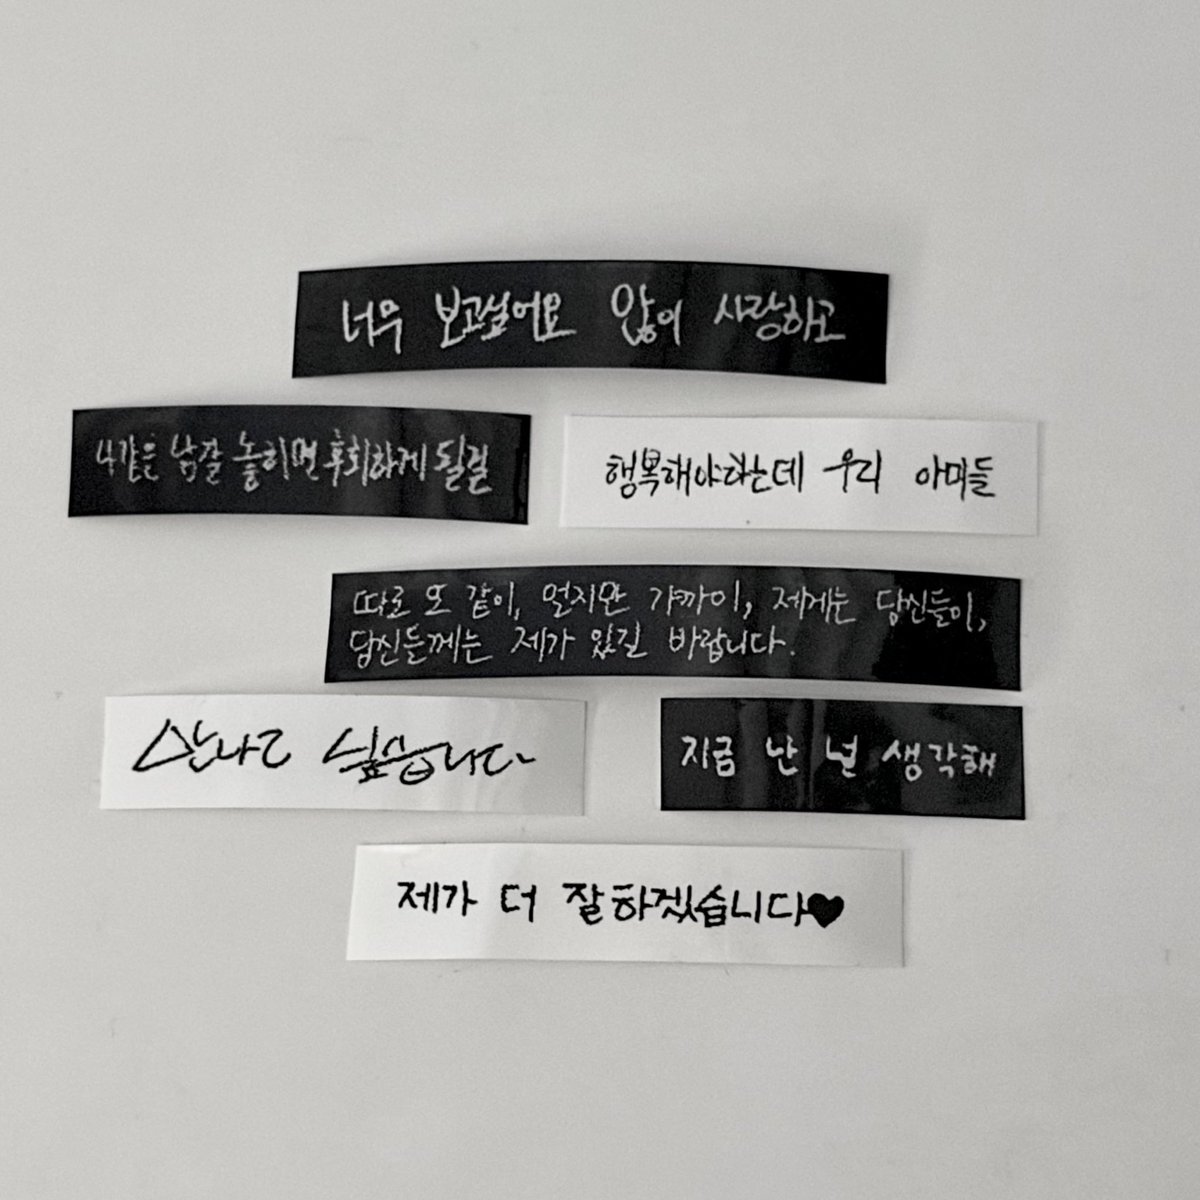 너무 보고싶어요 많이 사랑하고
나같은 남잘 놓히면 후회하게 될걸
행복해야하는데 우리 아미들
따로 또 같이, 멀지만 가까이, 제게는 당신들이,
당신들께는 제가 있길 바랍니다.
만나고 싶습니다.
지금 난 널 생각해
제가 더 잘하겠습니다♥